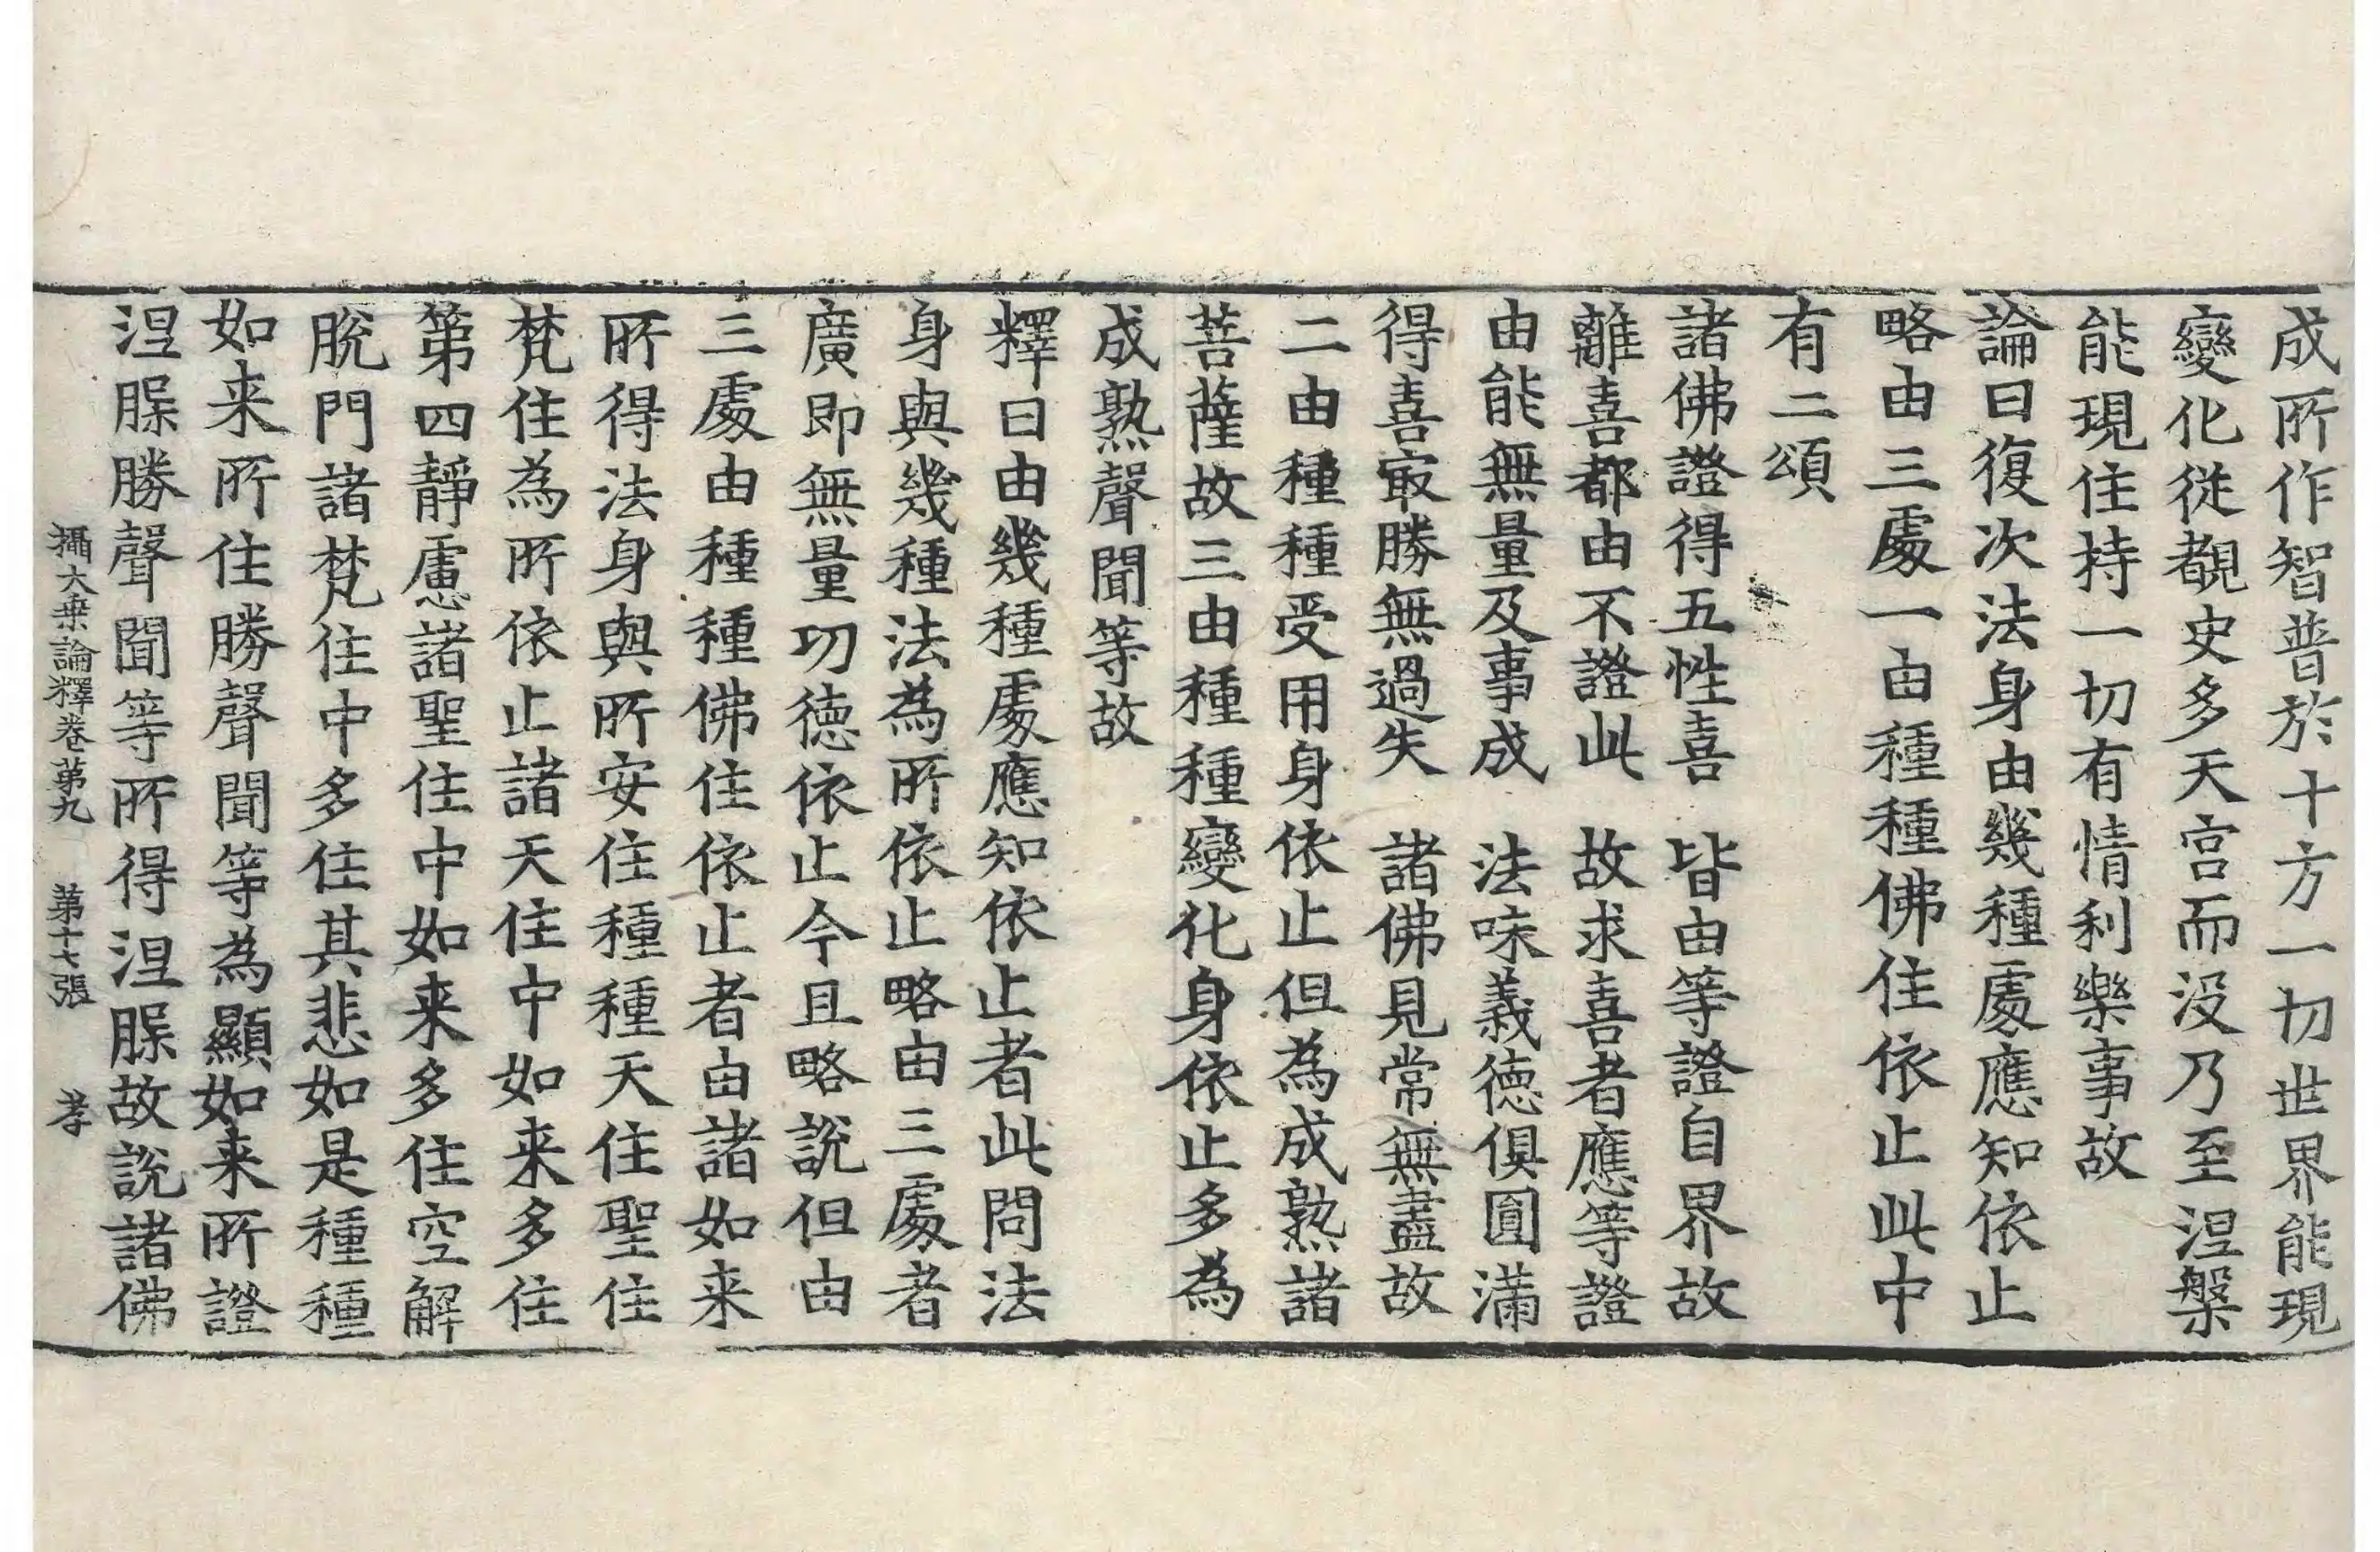 成所作智普於十方一切世界能現
變化從覩史多天宫而没乃至涅槃
能現住持一切有情利樂事故
論曰復次法身由幾種處應知依止
略由三處一由種種佛住依止此中
有二頌
諸佛證得五性喜　皆由等證自界故
離喜都由不證此　故求喜者應等證
由能無量及事成　法味義德俱圓滿
得喜冣勝無過失　諸佛見常無盡故
二由種種受用身依止但為成熟諸
菩薩故三由種種變化身依止多為
成熟聲聞等故
釋曰由幾種處應知依止者此問法
身與幾種法為所依止略由三處者
廣即無量功德依止今且略說但由
三處由種種佛住依止者由諸如来
所得法身與所安住種種天住聖住
梵住為所依止諸天住中如来多住
第四靜慮諸聖住中如来多住空解
脫門諸梵住中多住其悲如是種種
如来所住勝聲聞等為顯如来所證
涅槃勝聲聞等所得涅槃故說諸佛
攝大乗論釋卷苐九　苐十七張　孝